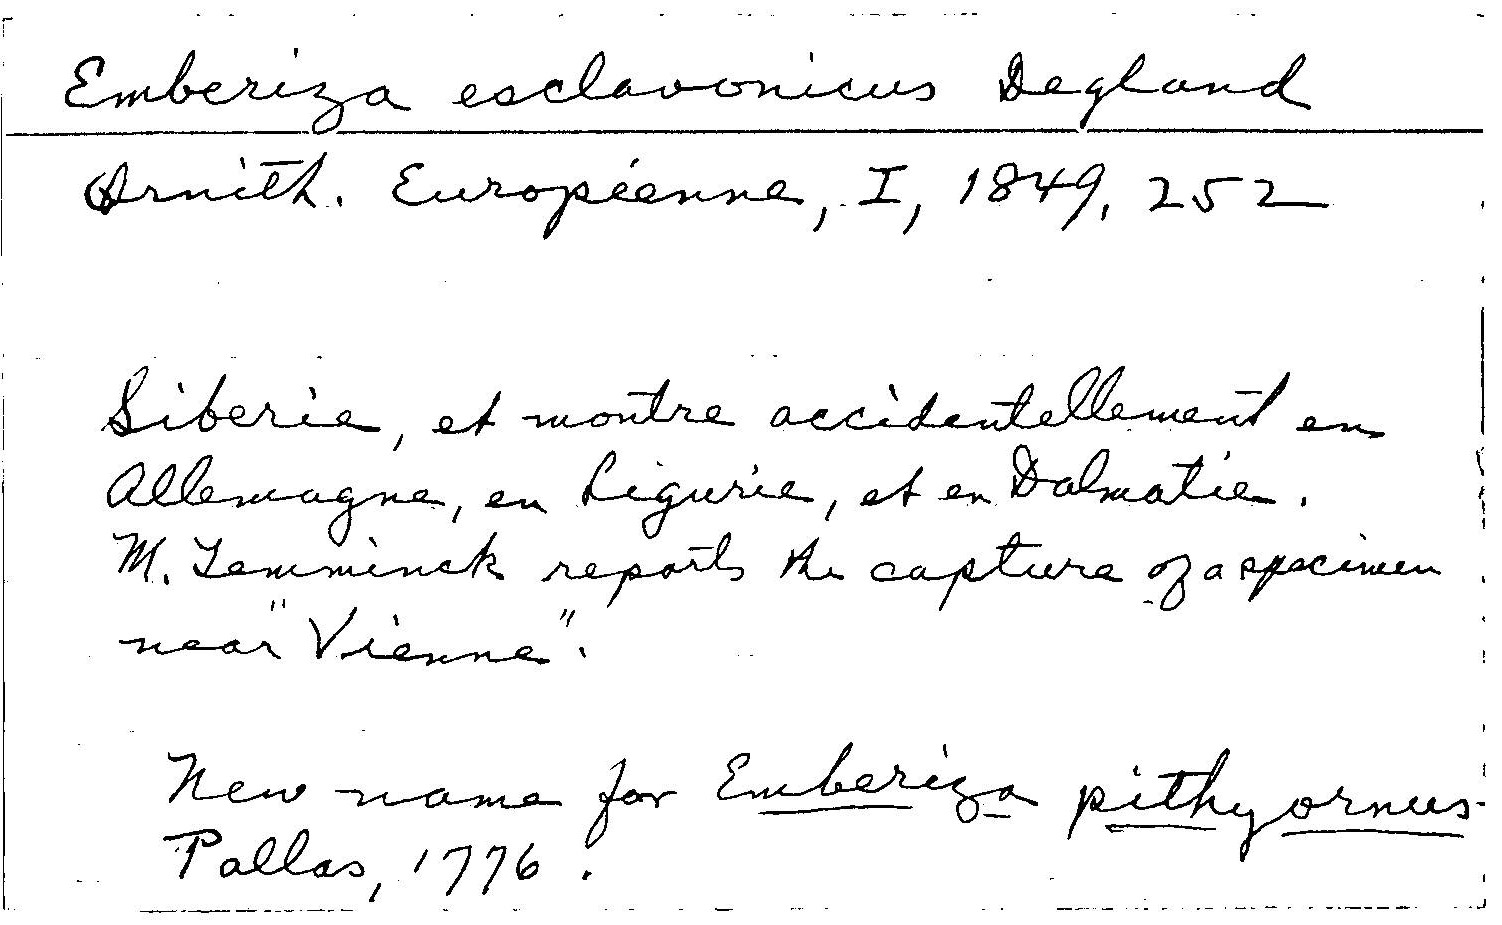 Emberiza esclavonicus Degland
Ornith. Européenne, I, 1849, 252
Siberie, et montre accidentellement en
Allemagne, en Ligurie, et en Dalmatie.
M. Temminck reports the capture of a specimen
near "Vienne".
New name for Emberiza pithyornus
Pallas, 1776.